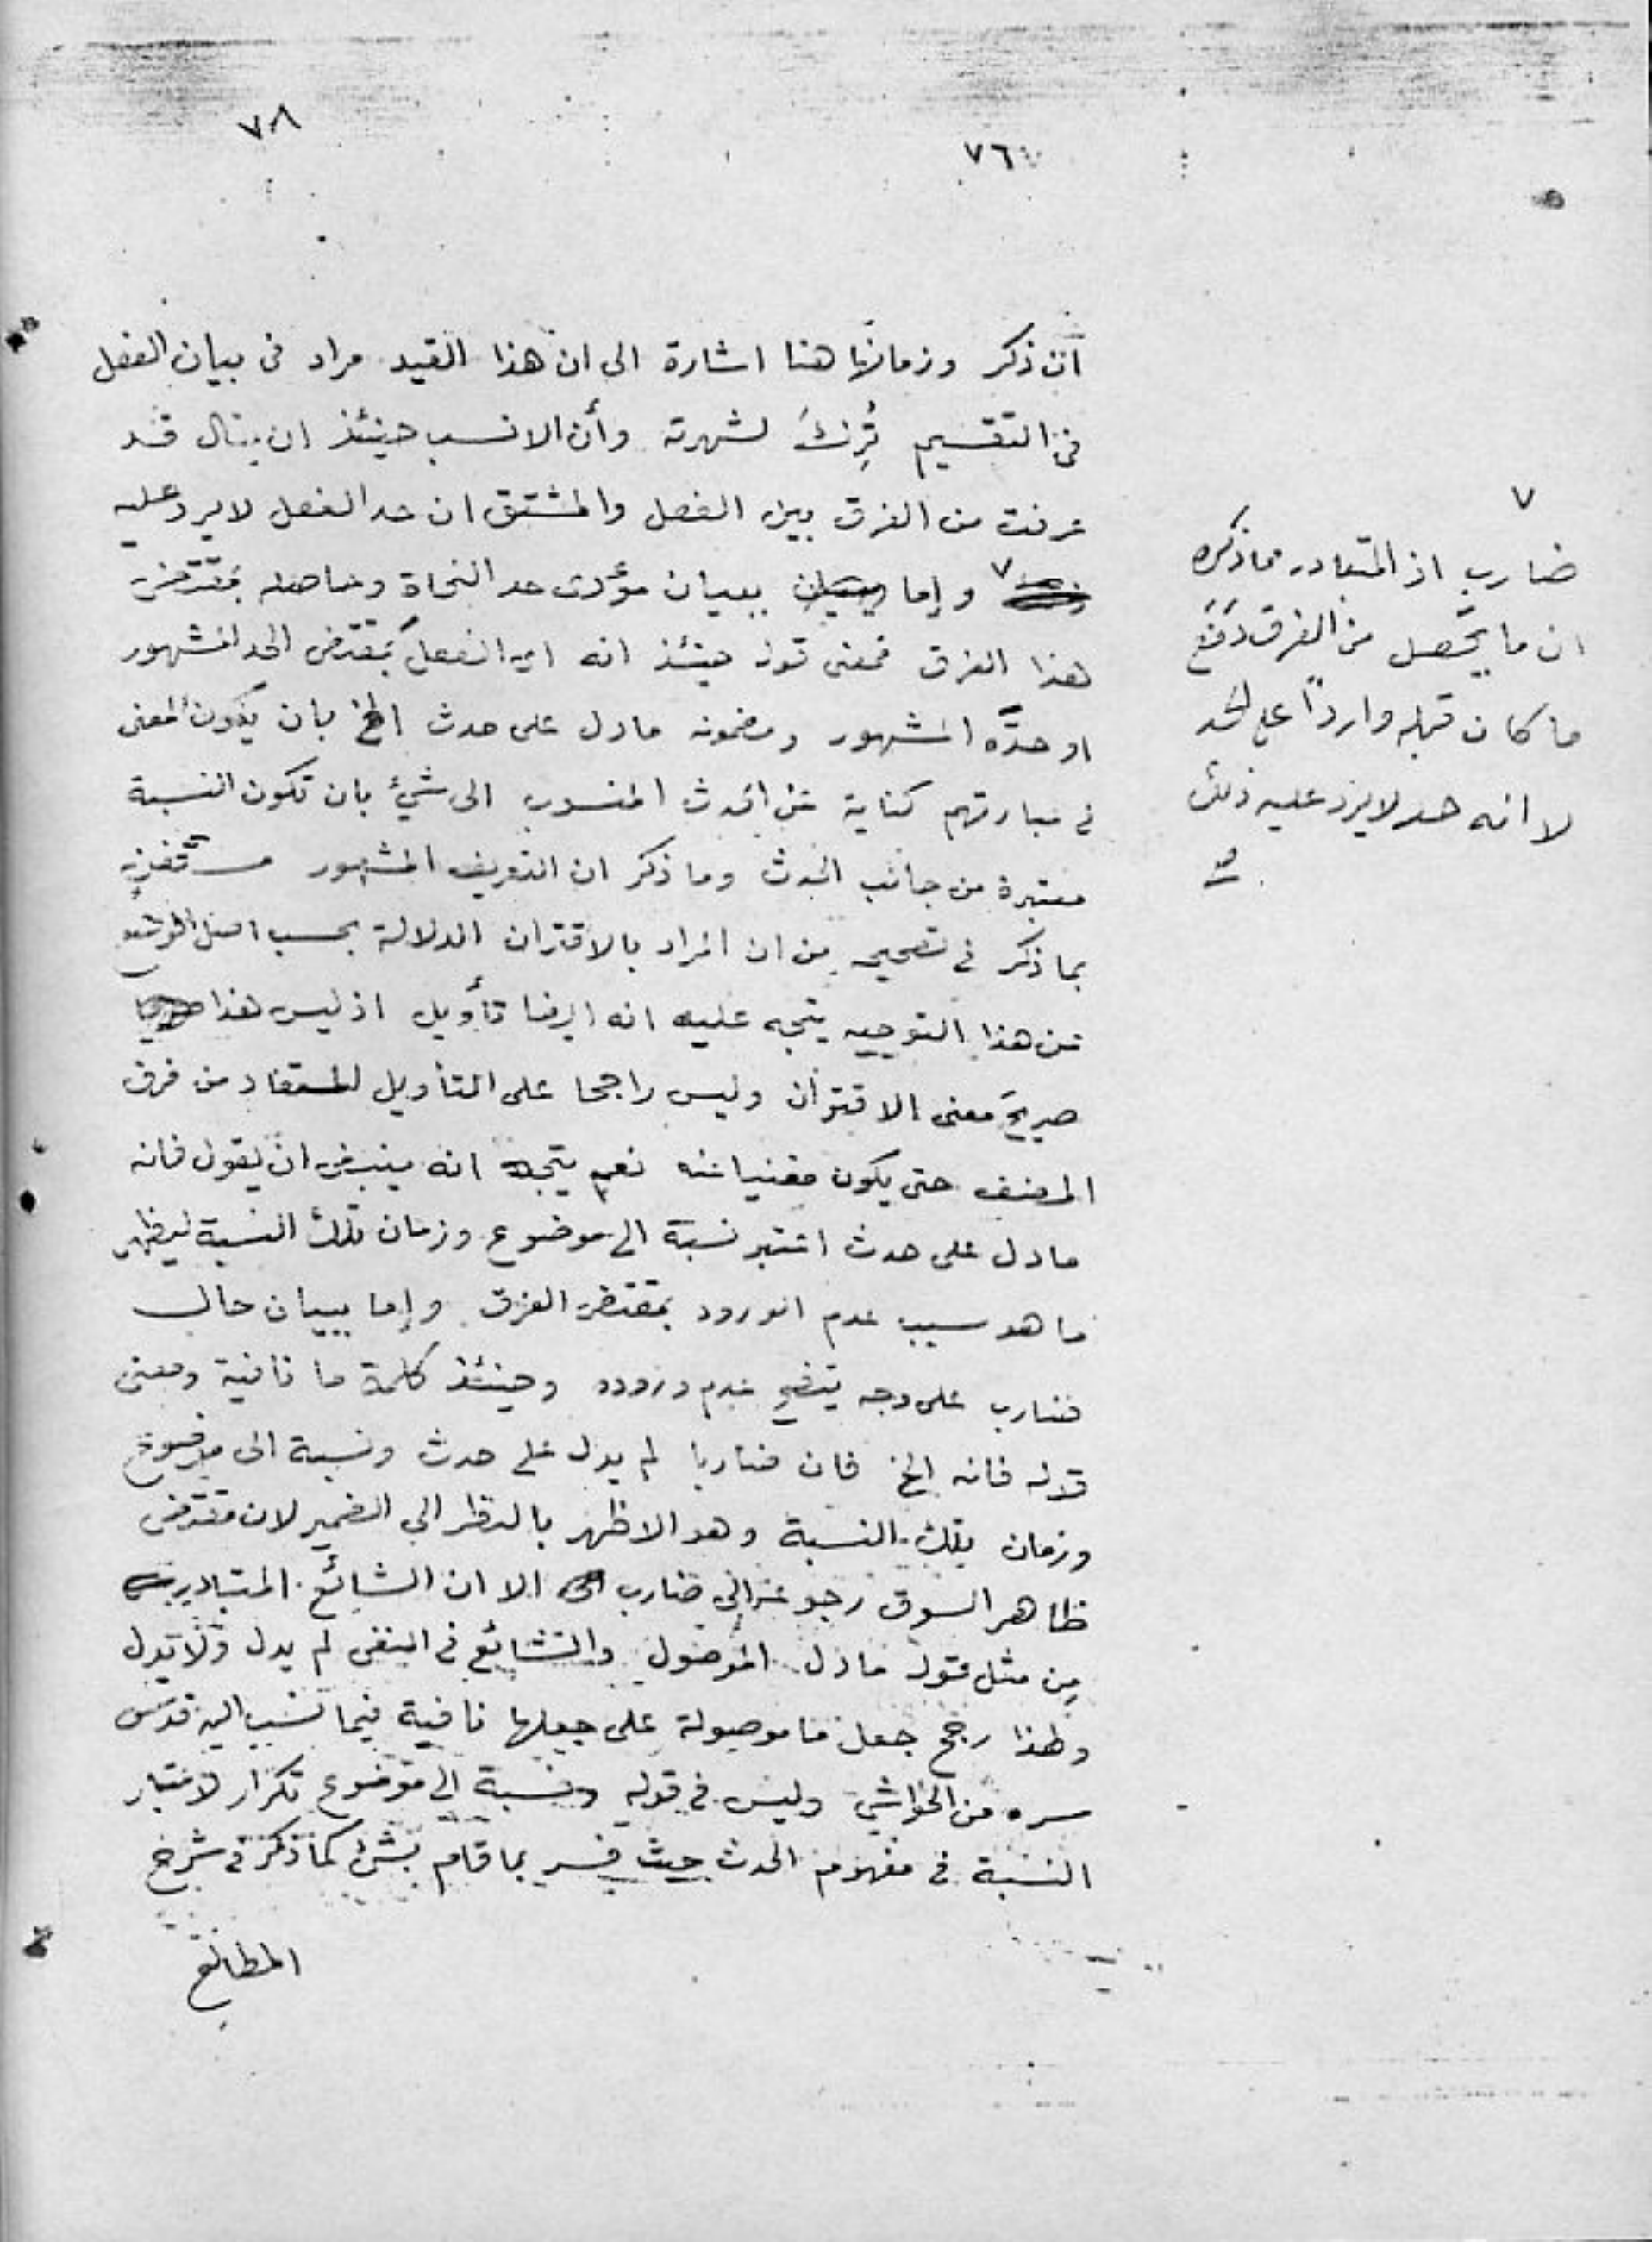 ٧٨
٧٦
ان ذكر وزمانها هنا اشارة الى ان هذا القيد مراد فى بيان الفعل
فى التقسيم تُرِكَ لشهرته وأن الانسب حينئذ ان يقال قد
عرفت من الفرق بين الفعل والمشتق ان حد الفعل لا يرد عليه
٧ وإما ببيان مؤدى حد النحاة وحاصله بمقتضى
هذا الفرق فمعنى قوله حينئذ انه اى الفعل بمقتضى الحد المشهور
او حدَّه المشهور ومضمونه مادل على حدث الخ بان يكون المعنى
فى عبارتهم كناية عن الحدث المنسوب الى شئ بان تكون النسبة
معتبرة من جانب الحدث وما ذكر ان التعريف المشهور مستغن
بما ذكر فى تصحيحه من ان المراد بالاقتران الدلالة بحسب اصل الوضع
عن هذا التوجيه يتجه عليه انه ايضا تأويل اذ ليس هذا
صريحَ معنى الاقتران وليس راجحا على التأويل المستفاد من فرق
المصنف حتى يكون مغنيا عنه نعم يتجه انه ينبغى ان يقول فانه
مادل على حدث اعتبر نسبة الى موضوع وزمان تلك النسبة ليظهر
ما هو سبب عدم الورود بمقتضى الفرق وإما ببيان حال
ضارب على وجه يتضح عدم وروده وحينئذ كلمة ما نافية ومعنى
قوله فانه الخ فان ضاربا لم يدل على حدث ونسبة الى موضوع
وزمان تلك النسبة وهو الاظهر بالنظر الى الضمير لان مقتضى
ظاهر السوق رجوعه الى ضارب الا ان الشائع المتبادر
مِن مثل قوله مادل الموصول والشائع فى النفى لم يدل ولا يدل
ولهذا رجح جعل ما موصولة على جعلها نافية فيما نسب اليه قدس
سره من الحواشي وليس فى قوله ونسبة الى موضوع تكرار لاعتبار
النسبة فى مفهوم الحدث حيث فسر بما قام بشئ كما ذكر فى شرح
المطالع
٧
ضارب اذ المتبادر مما ذكره
ان ما يحصل من الفرق دَفْعُ
ما كان قبله واردًا على الحد
لا انه حد لا يرد عليه ذلك